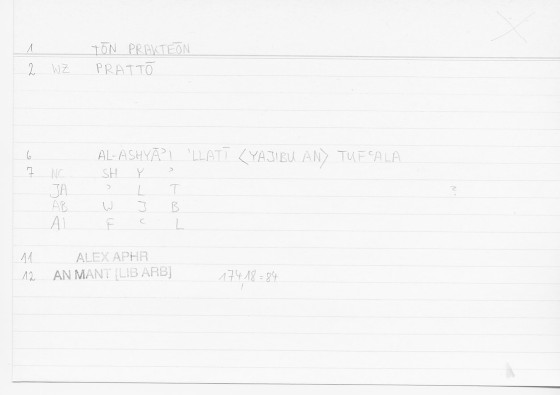 1 TŌN PRAKTEŌN
2 WZ PRATTŌ
6 AL-ASHYĀʾI ʾLLATĪ <YAJIBU AN> TUFʿALA
7 NC SH Y ʾ
JA ʾ L T ?
AB W J B
AI F ʿ L
11 ALEX APHR
12 AN MANT [LIB ARB] 174,18 = 84